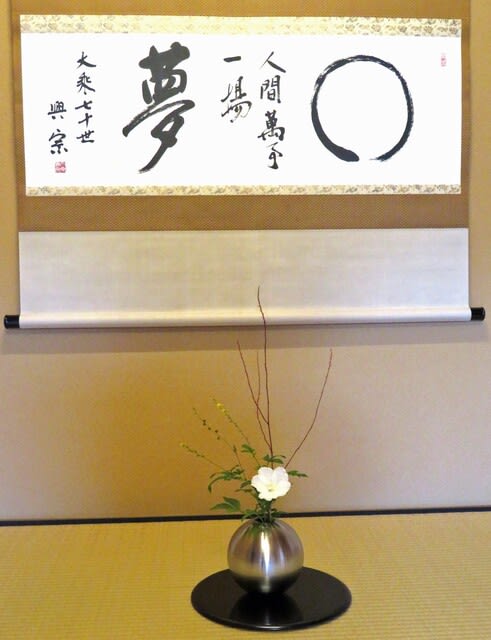 人間萬事
一場
夢
大乘七十世
興宗